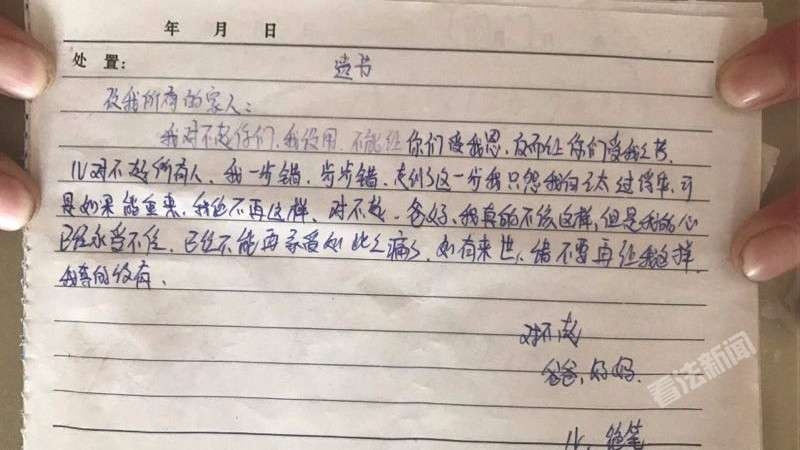 年 月 日
处置: 遗书
致我所有的家人:
我对不起你们,我没用,不能让你们受我恩,反而让你们受我之苦,
IV对不起所有人,我一步错,步步错,走到了这一步我只怨我自己太过倔牢,可
是如果能重来,我绝不再这样,对不起,爸妈,我真的不该这样,但是我的心
已经承受不住,已经不能再承受如此之痛了,如有来世,请不要再让我这样,
我真的没有.
对不起
爸爸,妈妈.
IV,绝笔
看法新闻